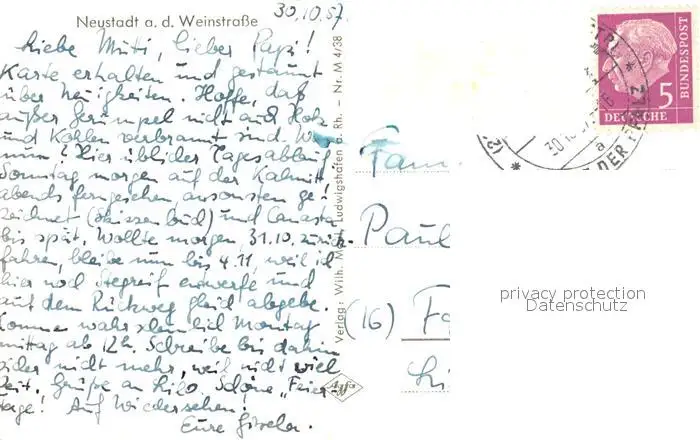 Neustadt a. d. Weinstraße
30.10.57.
Liebe Muti, lieber Papi!
Karte erhalten und gestaunt
über Neuigkeiten. Hoffe, daß
außer Gerümpel nicht auch Holz
und Kohlen verbrannt sind. Wa
nun? Hier üblicher Tagesablauf
Sonntag morgen auf der Kalmit
abends ferngesehen, ansonsten ge-
zeichnet (Skizzenbuch) und Canasta
bis spät. Wollte morgen, 31.10. zurück-
fahren, bleibe nun bis 4.11, weil ich
hier noch Stegreif entwerfe und
auf dem Rückweg gleich abgebe.
Komme wahrscheinlich Montag
mittag ab 12h. Schreibe bis dahin
leider nicht mehr, weil nicht viel
Zeit. Grüße an Lilo. Schöne „Feier-
tage! Auf Wiedersehen!
Eure
Verlag: Wilh. M Ludwigshafen a. Rh. – Nr. M 4/38
Agfa
Fam
Paul
(16) F
DEUTSCHE BUNDESPOST
5
30.10.5
a
DER PFALZ
privacy protection
Datenschutz